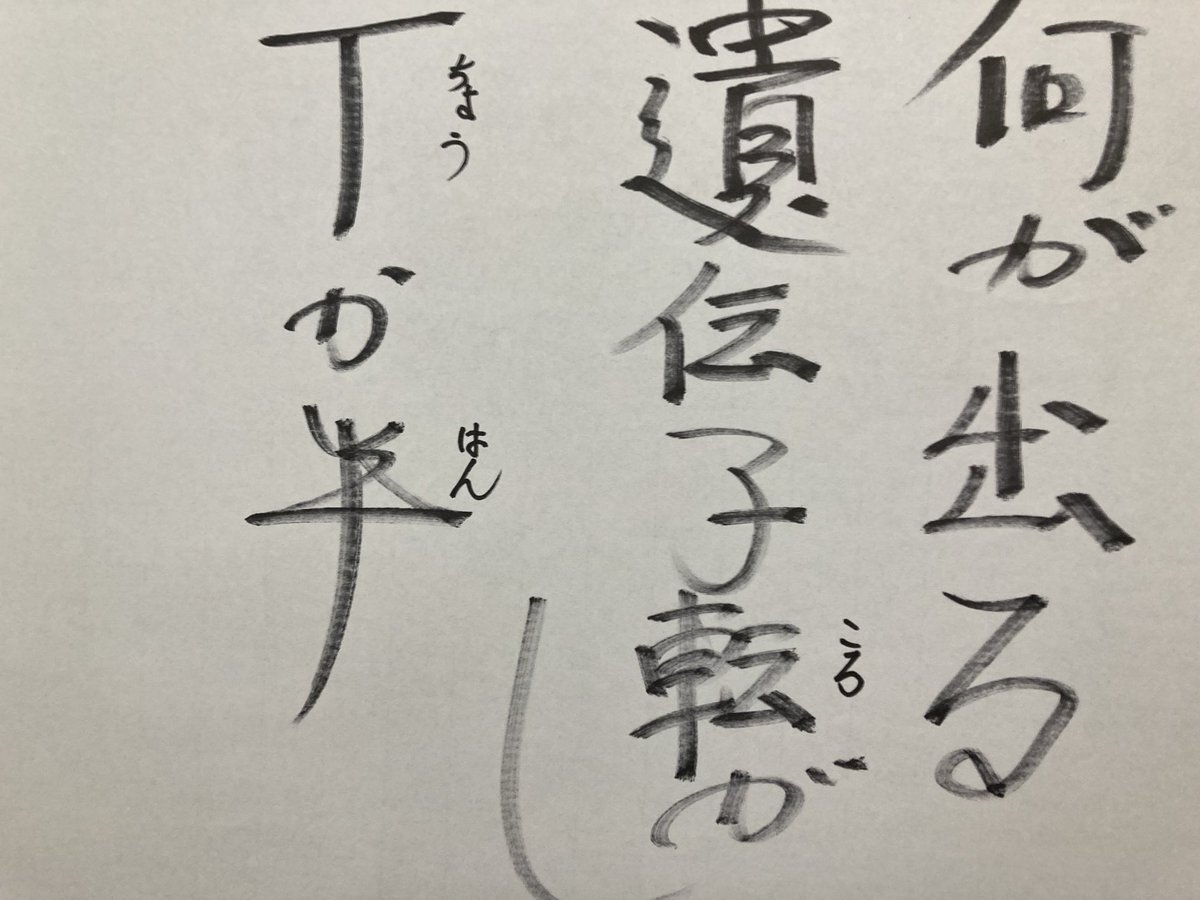 何が出る
遺伝子転がし
丁か半
ころ
ちょう
はん